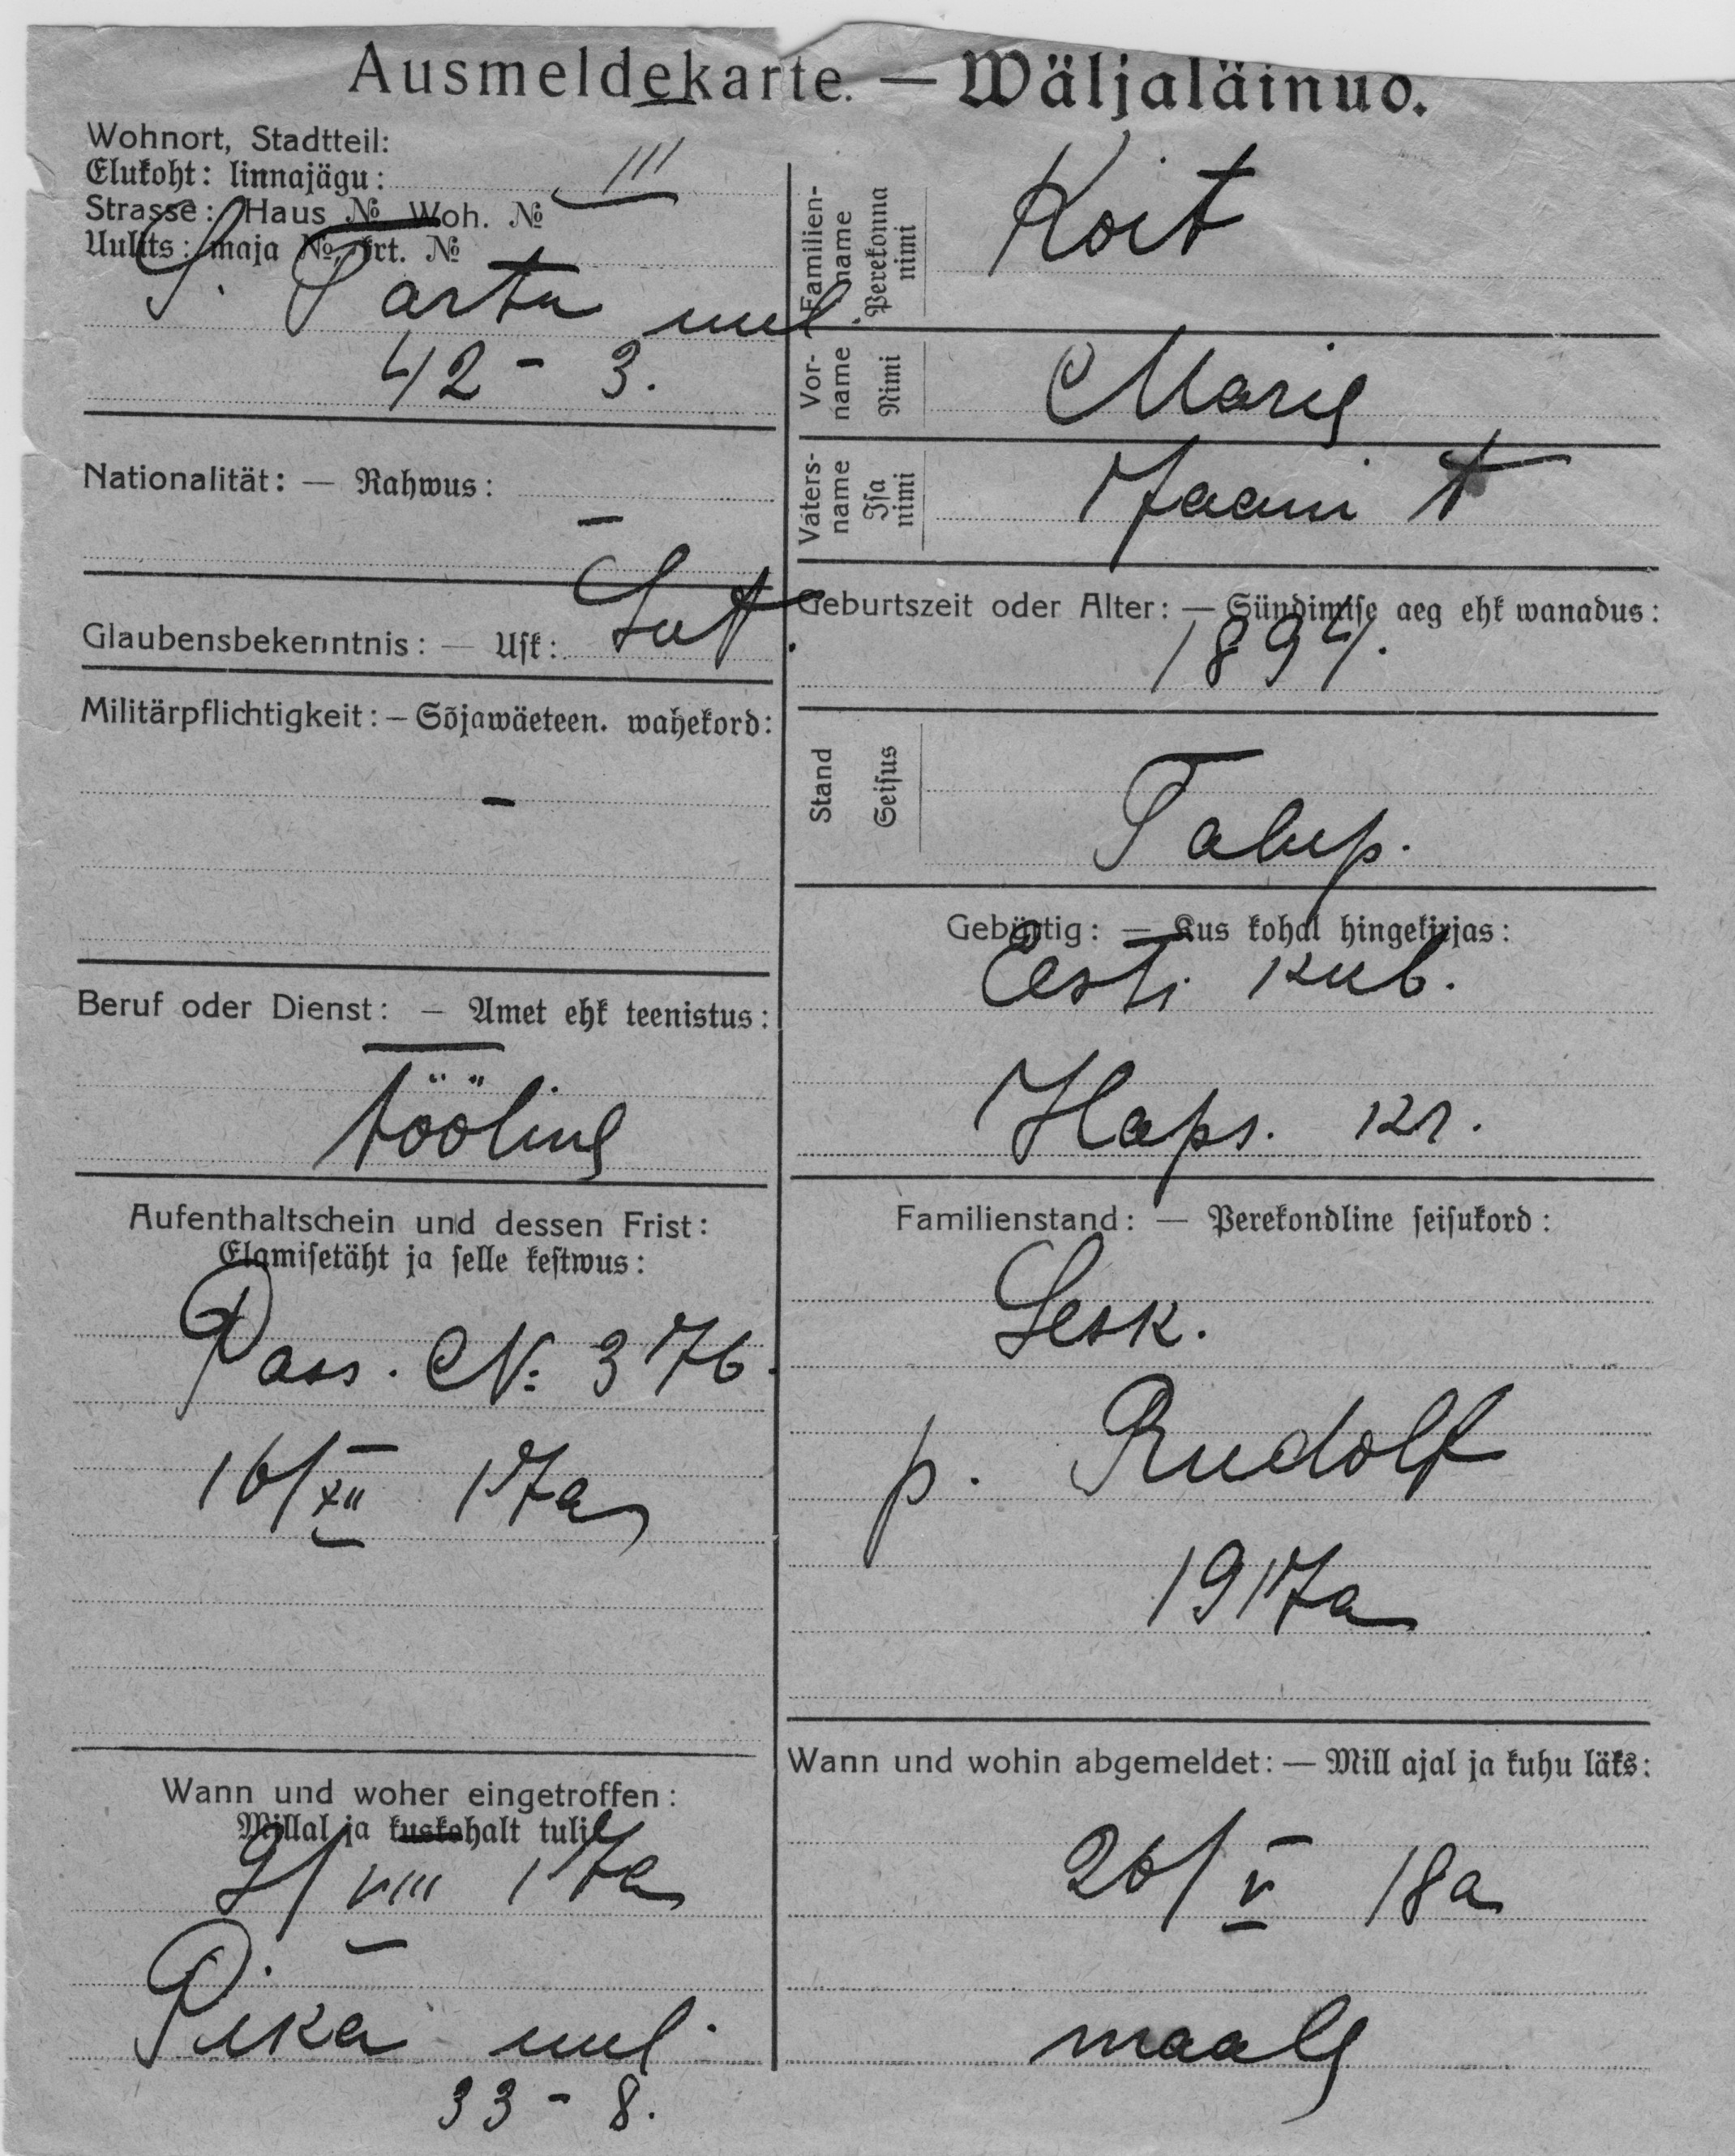 Ausmeldekarte. — Wäljaläinuo.
Wohnort, Stadtteil:
Elukoht: linnajägu:
III
Strasse: Haus № Woh. №
Uulits: maja № krt. №
S. Tartu uul.
42 - 3.
Nationalität: — Rahwus:
—
Glaubensbekenntnis: — Usk: Lut.
Militärpflichtigkeit: — Sõjawäeteen. wahekord:
—
Beruf oder Dienst: — Amet ehk teenistus:
tööline
Aufenthaltschein und dessen Frist:
Elamisetäht ja selle kestwus:
Pass. №: 376.
16/XII 17a
Wann und woher eingetroffen:
Millal ja kuskohalt tuli:
9/VIII 17a
Pika uul.
33 - 8.
Familien-name Perekonna nimi
Koit
Vor-name Nimi
Marie
Vaters-name Isa nimi
Jaani t
Geburtszeit oder Alter: — Sündimise aeg ehk wanadus:
1894.
Stand Seisus
Talup.
Gebürtig: — Kus kohal hingekirjas:
Eesti kub.
Haps. kr.
Familienstand: — Perekondline seisukord:
Lesk.
p. Rudolf
1917a
Wann und wohin abgemeldet: — Mill ajal ja kuhu läks:
26/V 18a
maale